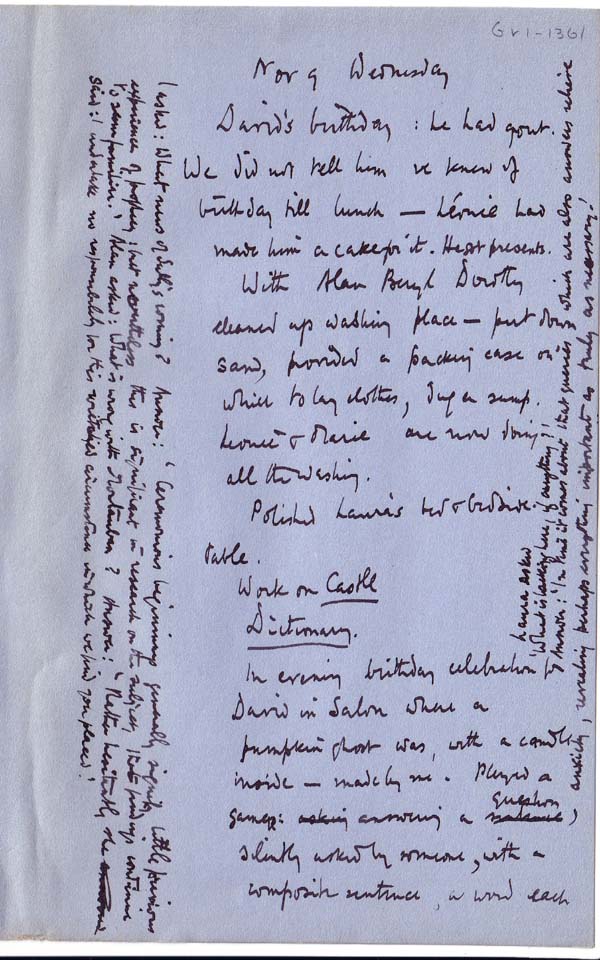 GV1-1361
Nov 9 Wednesday
David's birthday : he had gout.
We did not tell him we knew of
birthday till lunch — Léonie had
made him a cake for it. He got presents.
With Alan Beryl Dorothy
cleaned up washing place — put down
sand, provided a packing case on
which to lay clothes, dug a sump.
Léonie & Marie are now doing
all the washing.
Polished Laura's bed & bedside
table.
Work on Castle
Dictionary.
In evening birthday celebration for
David in Salon where a
pumpkin ghost was, with a candle
inside — made by me. Played a
game: asking answering a question,
silently asked by someone, with a
composite sentence, a word each
Laura asked
'What is lacking here, if anything?'
Answer: 'In that it comes about that queries which are also answers relieve
anxiety, revealing perhaps everything important as truly as necessary.'
I asked: What news of Sally's coming? Answer: 'Ceremonious beginnings generally signify little previous
experience of prophecy; but nevertheless this is significant in research on the subject, that findings continue
to seem positive.' Alan asked: What is wrong with ? Answer: 'Rather hesitantly she
said: I undertake no responsibility for this wretched circumstance in which we find you placed.'